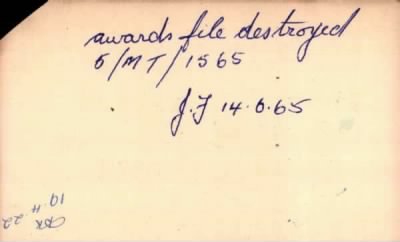 awards file destroyed
6/MT/1565
J.F 14.6.65
19.4.22